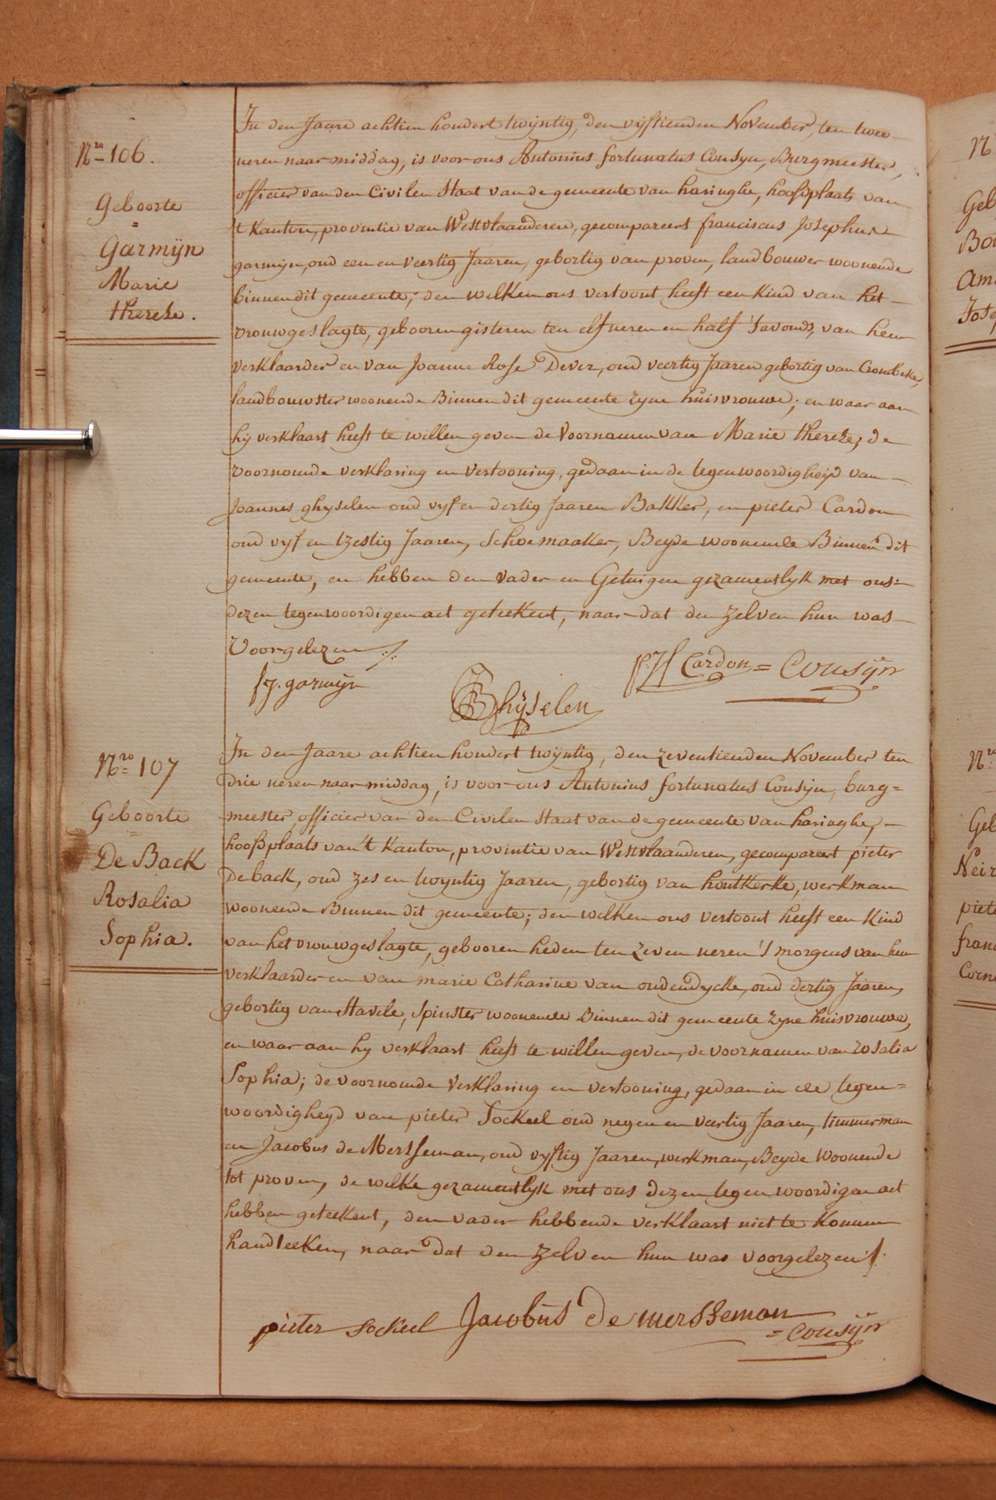 Nro 106.
Geboorte
Garmÿn
Marie
thereze.
In den Jaare achtien hondert twÿntig, den vÿftienden November, ten twee
ueren naar middag, is voor ons Antonius fortunatus Cousyn, Burgmeester,
officier van den Civilen Staat van de gemeente van haringhe, hoofplaats van
't Kanton, provintie van Westvlaanderen, gecompareert franciscus Josephus
garmÿn, oud een en veertig Jaaren, gebortig van proven, landbouwer woonende
binnen dit gemeente; den welken ons vertoont heeft een kind van het
vrouwgeslagte, gebooren gisteren ten elf ueren en half 's avonds, van hem
verklaarder en van Joanne Rose Dever, oud veertig Jaaren gebortig van Crombeke,
landbouwster woonende Binnen dit gemeente zyne huisvrouwe; en waar aan
hy verklaart heeft te willen geven de Voornamen van Marie thereze; de
voornoemde verklaring en vertooning, gedaan in de tegenwoordigheÿd van
Joannes ghyselen oud vyf en dertig Jaaren Bakker, en pieter Cardon
oud vyf en tzestig Jaaren, Schoemaaker, Beÿde woonende Binnen dit
gemeente, en hebben den vader en Getuigen gezamentlÿk met ons
dezen tegenwoordigen act geteekent, naar dat den zelven hun was
Voorgelezen ./.
f j. garmÿn
Ghÿselen
Cardon = Cousÿn
Nro 107
Geboorte
De Back
Rosalia
Sophia.
In den Jaare achtien hondert twÿntig, den zeventienden November ten
drie ueren naar middag, is voor ons Antonius fortunatus Cousyn, burg=
meester officier van den Civilen Staat van de gemeente van haringhe,
hoofplaats van 't Kanton, provintie van Westvlaanderen, gecompareert pieter
De back, oud zes en twÿntig Jaaren, gebortig van houtkerke, werkman
woonende Binnen dit gemeente; den welken ons vertoont heeft een Kind
van het vrouwgeslagte, gebooren heden ten zeven ueren 's morgens van hem
verklaarder en van marie Catharine van oudendycke, oud dertig Jaaren,
gebortig van Stavele, Spinster woonende Binnen dit gemeente zyne huisvrouwe,
en waar aan hy verklaart heeft te willen geven, de voornamen van Rosalia
Sophia; de voornoemde verklaring en vertooning, gedaan in de tegen=
woordigheyd van pieter Sockeel oud negen en veertig Jaaren, timmerman
en Jacobus de Mersseman, oud vyftig Jaaren, werkman, Beÿde woonende
tot proven, de welke gezamentlÿk met ons dezen tegenwoordigen act
hebben geteekent, den vader hebbende verklaart niet te konnen
handteeken, naar dat den zelven hun was voorgelezen ./.
pieter sockeel Jacobus de mersseman
= Cousÿn
N
Gel
Bo
Am
Jose
Nro
Gel
Neir
piete
fran
Corne